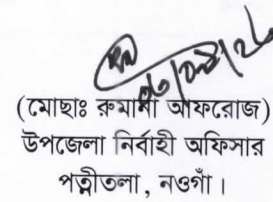 (মোছাঃ রুমানা আফরোজ)
উপজেলা নির্বাহী অফিসার
পত্নীতলা, নওগাঁ।